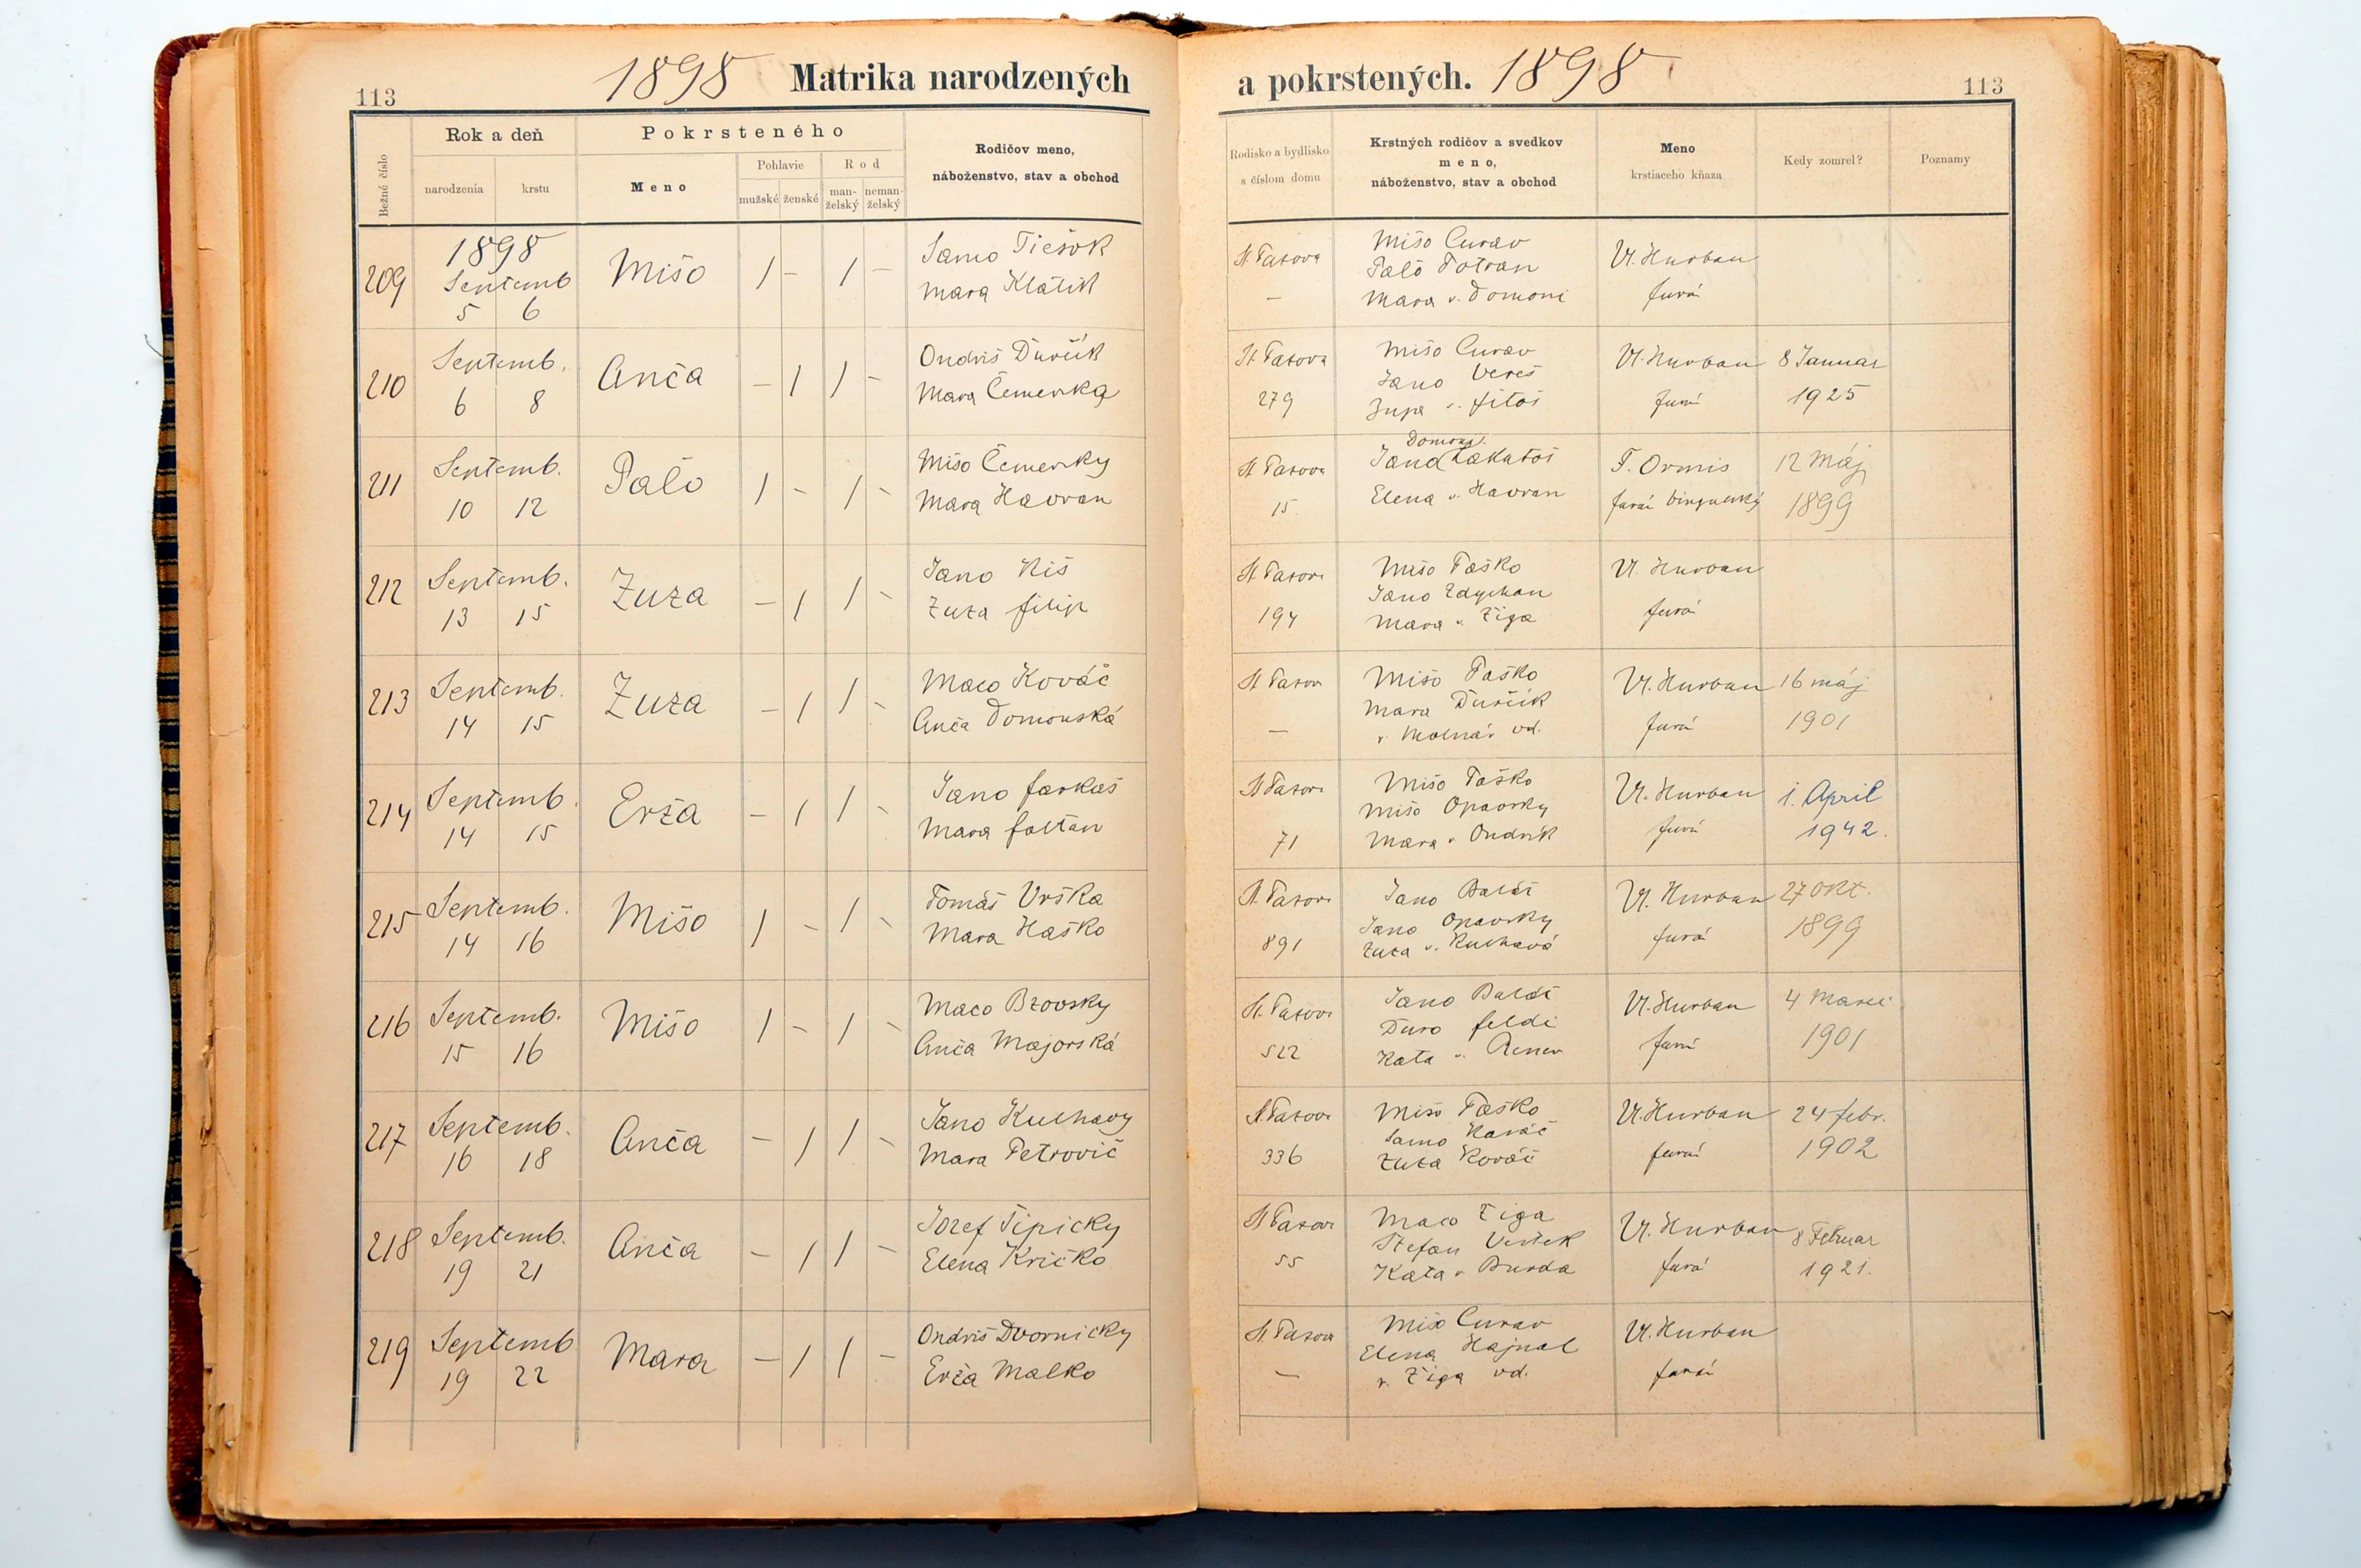 1898 Matrika narodzených
113
Bežné číslo
Rok a deň
narodzenia
krstu
Pokrsteného
Meno
Pohlavie
mužské ženské
Rod
man-želský
neman-želský
Rodičov meno,
náboženstvo, stav a obchod
209
1898
Septemb
5 6
Mišo
/ - / -
Samo Tiesok
Mara Klátik
210
Septemb.
6 8
Anča
- / / -
Ondriš Ďurčík
Mara Čemerka
211
Septemb.
10 12
Palo
/ - / -
Mišo Čemerky
Mara Havran
212
Septemb.
13 15
Zuza
- / / -
Jano Kiš
Zuza Filip
213
Septemb.
14 15
Zuza
- / / -
Maco Kováč
Anča Domonská
214
Septemb.
14 15
Erža
- / / -
Jano Farkaš
Mara Faltan
215
Septemb.
14 16
Mišo
/ - / -
Tomáš Vrška
Mara Haško
216
Septemb.
15 16
Mišo
/ - / -
Maco Bzovsky
Anča Majorská
217
Septemb.
16 18
Anča
- / / -
Jano Kulhavy
Mara Petrovič
218
Septemb.
19 21
Anča
- / / -
Jozef Tipicky
Elena Kričko
219
Septemb
19 22
Mara
- / / -
Ondriš Dvornicky
Erža Malko
a pokrstených. 1898
113
Rodisko a bydlisko
s číslom domu
Krstných rodičov a svedkov
meno,
náboženstvo, stav a obchod
Meno
krstiaceho kňaza
Kedy zomrel?
Poznamy
St. Pazova
—
Mišo Curav
Palo Potran
Mara v. Domoni
Vl. Hurban
farár
St. Pazova
279
Mišo Curav
Jano Vereš
Vl. Hurban
farár
8 Januar
1925
St Pazova
15
Domoni
Jano Lakatoš
Elena v. Havran
F. Ormis
farár bingulský
12 Máj
1899
St Pazova
194
Mišo Paško
Jano Zdychan
Mara v. Žiga
Vl. Hurban
farár
St Pazov
—
Mišo Paško
Mara Ďurčík
v. Molnár vd.
Vl. Hurban
farár
16 máj
1901
St Pazova
71
Mišo Paško
Mišo Opavsky
Mara v. Ondrík
Vl. Hurban
farár
1. April
1942.
St. Pazova
891
Jano Baláž
Jano Opavsky
Zuza v. Kulhavá
Vl. Hurban
farár
27 Okt.
1899
St. Pazova
522
Jano Baláž
Ďuro Feldi
Kata v.
Vl. Hurban
farár
4 Marec
1901
St. Pazova
336
Mišo Paško
Samo Kováč
Zuza Kováč
Vl. Hurban
farár
24 febr.
1902
St Pazov
55
Maco Žiga
Štefan
Kata v. Burda
Vl. Hurban
farár
8 Februar
1921.
St Pazova
—
Mišo Curav
Elena Hajnal
v. Žiga vd.
Vl. Hurban
farár